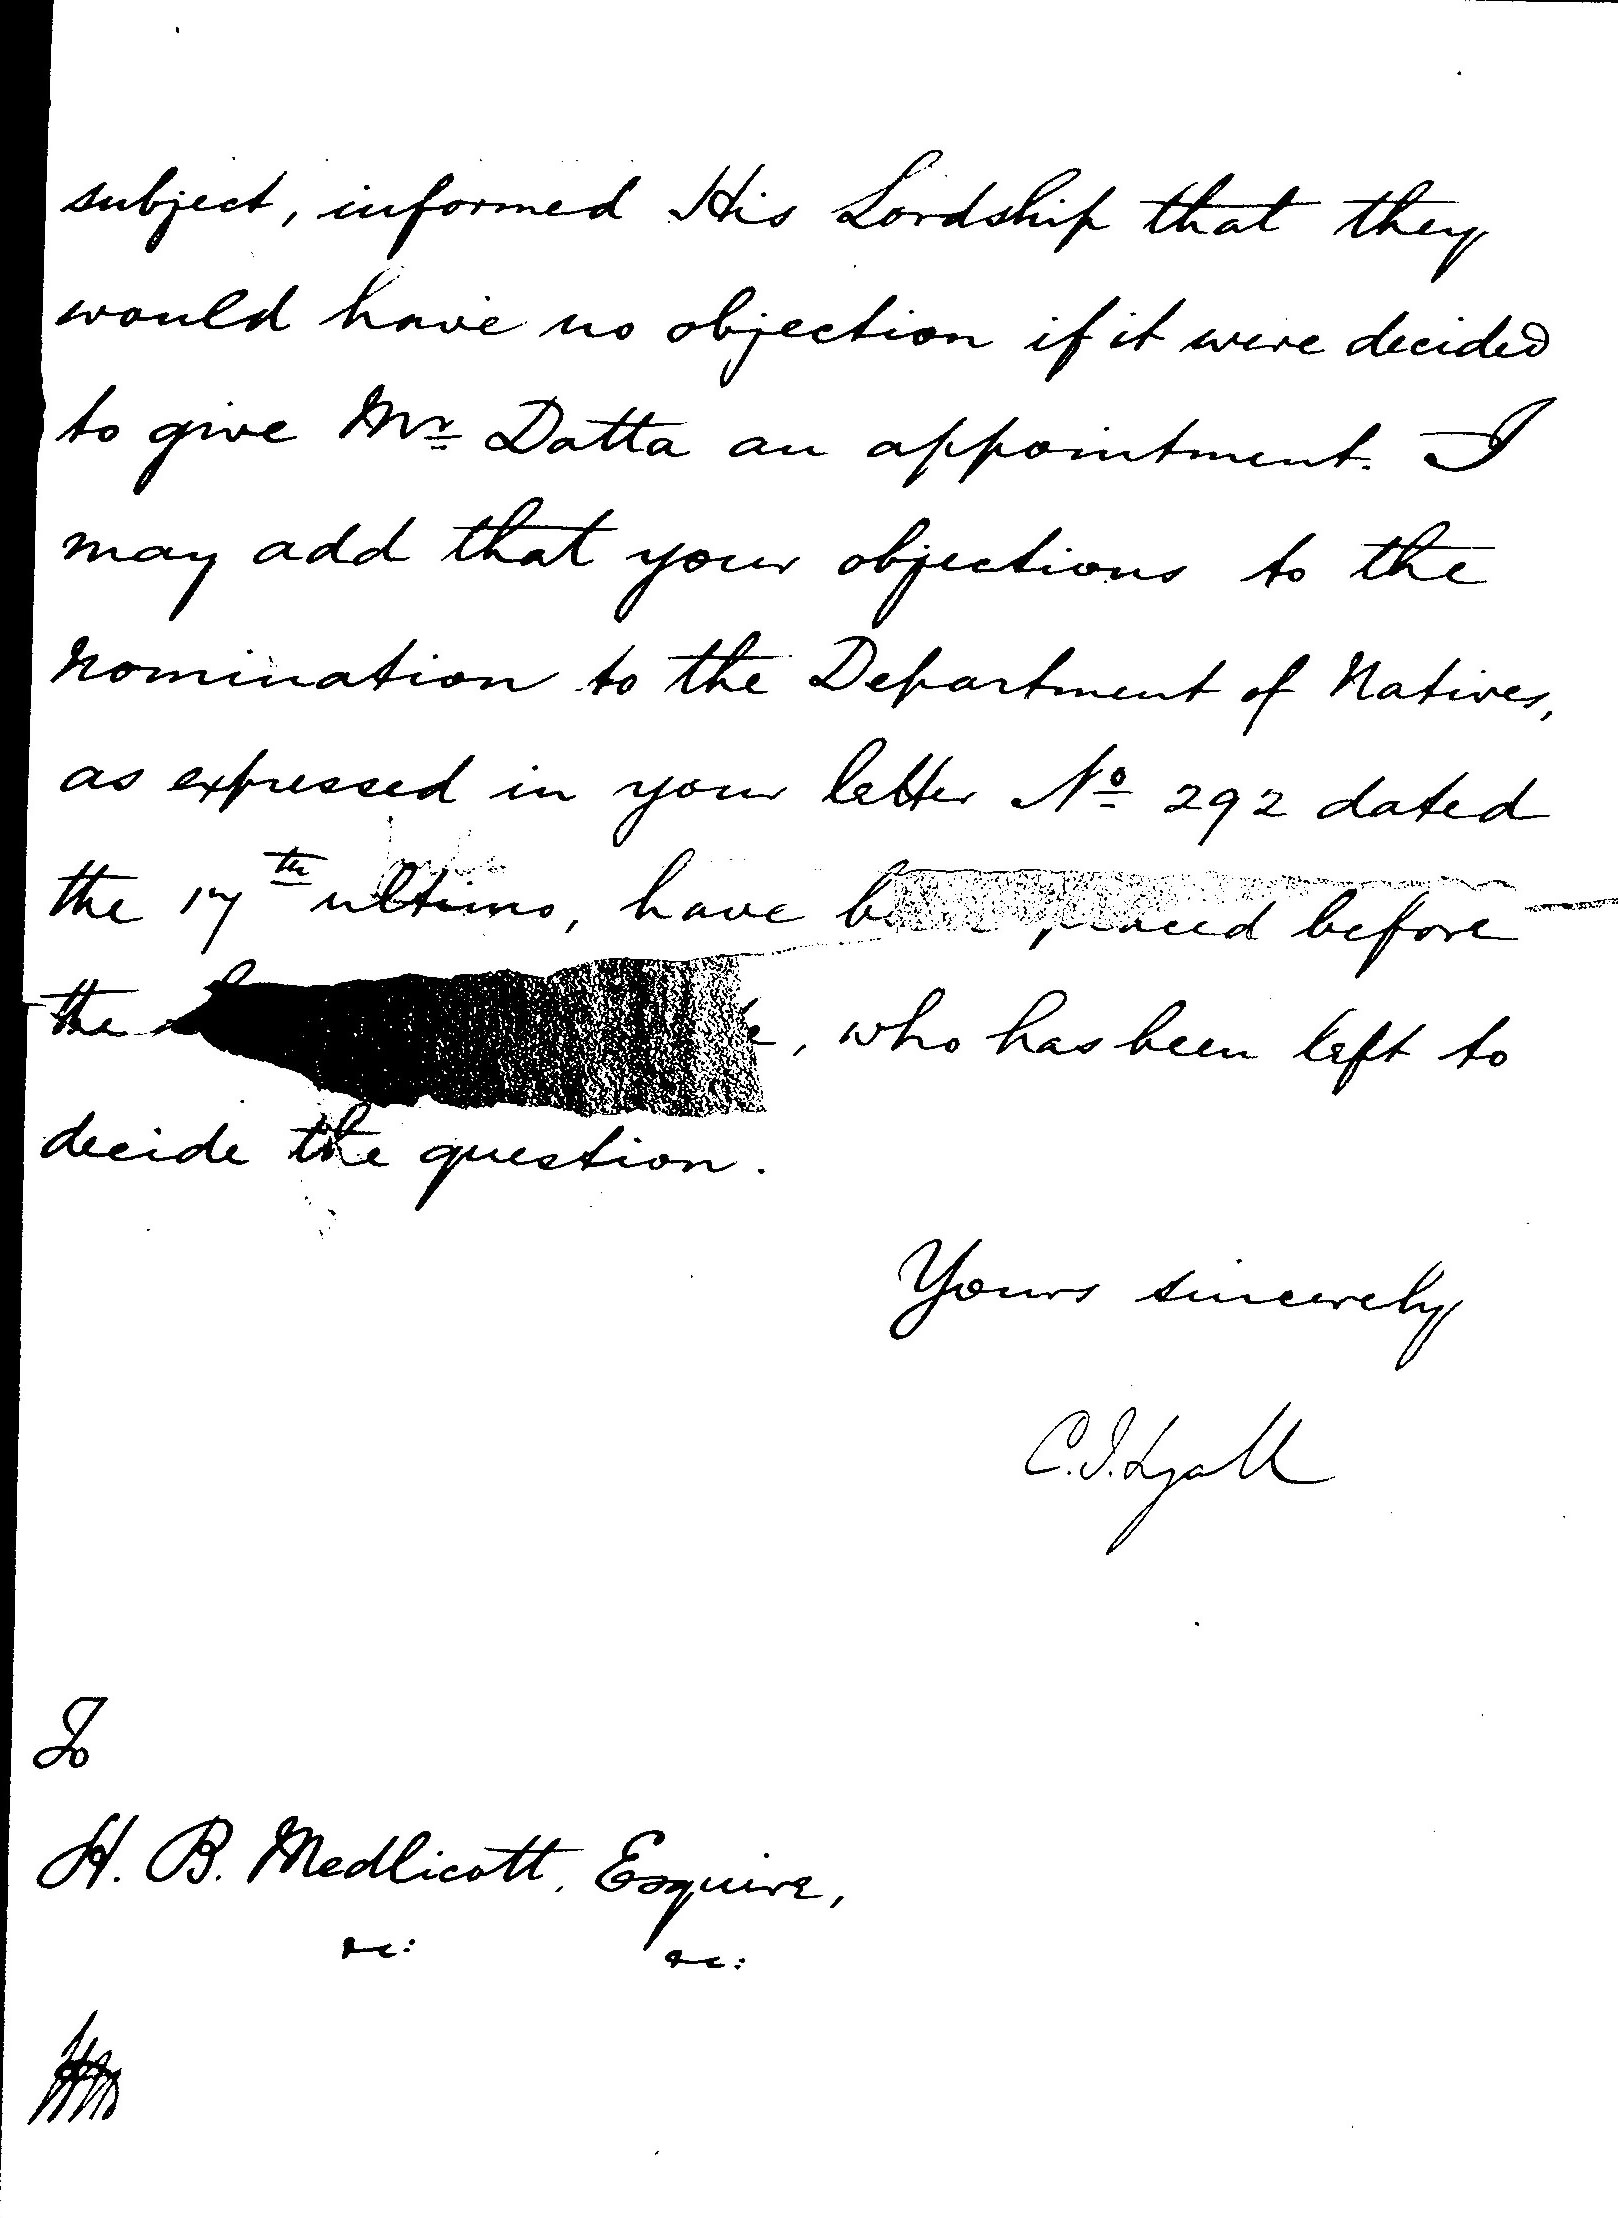 subject, informed His Lordship that they
would have no objection if it were decided
to give Mr Datta an appointment. I
may add that your objections to the
nomination to the Department of Natives,
as expressed in your letter No 292 dated
the 17th ultimo, have been placed before
the , who has been left to
decide the question.
Yours sincerely
C. J. Lyall
To
H. B. Medlicott, Esquire,
&c: &c: